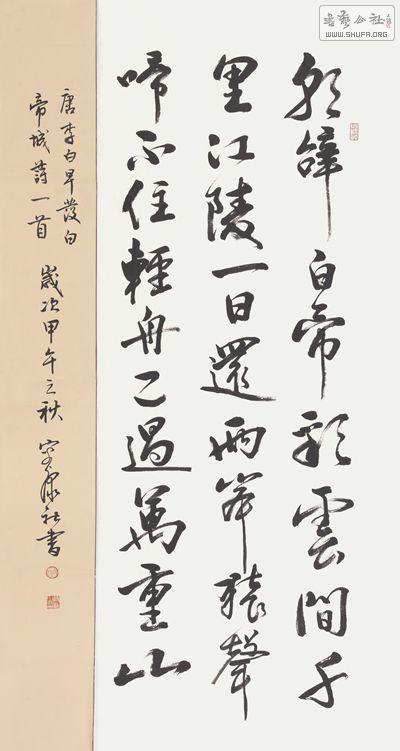 書藝公社
WWW.SHUFA.ORG
朝辭白帝彩雲間千
里江陵一日還兩岸猿聲
啼不住輕舟已過萬重山
唐李白早發白
帝城詩一首 歲次甲午立秋 書